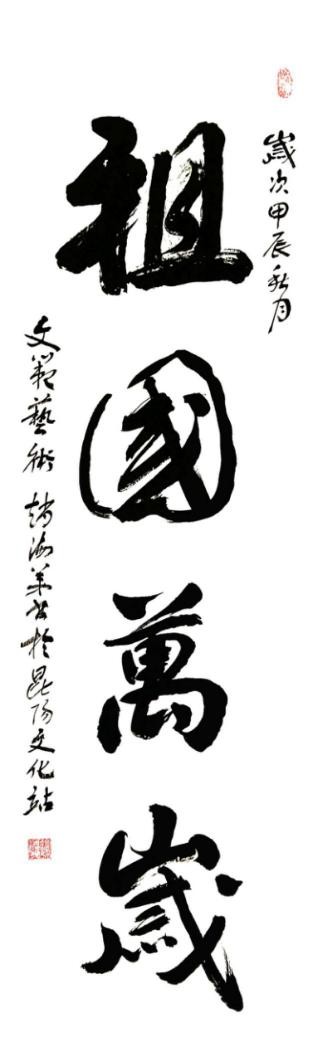 歲次甲辰秋月
祖國萬歲
文範藝術 趙海羊书於昆陽文化站